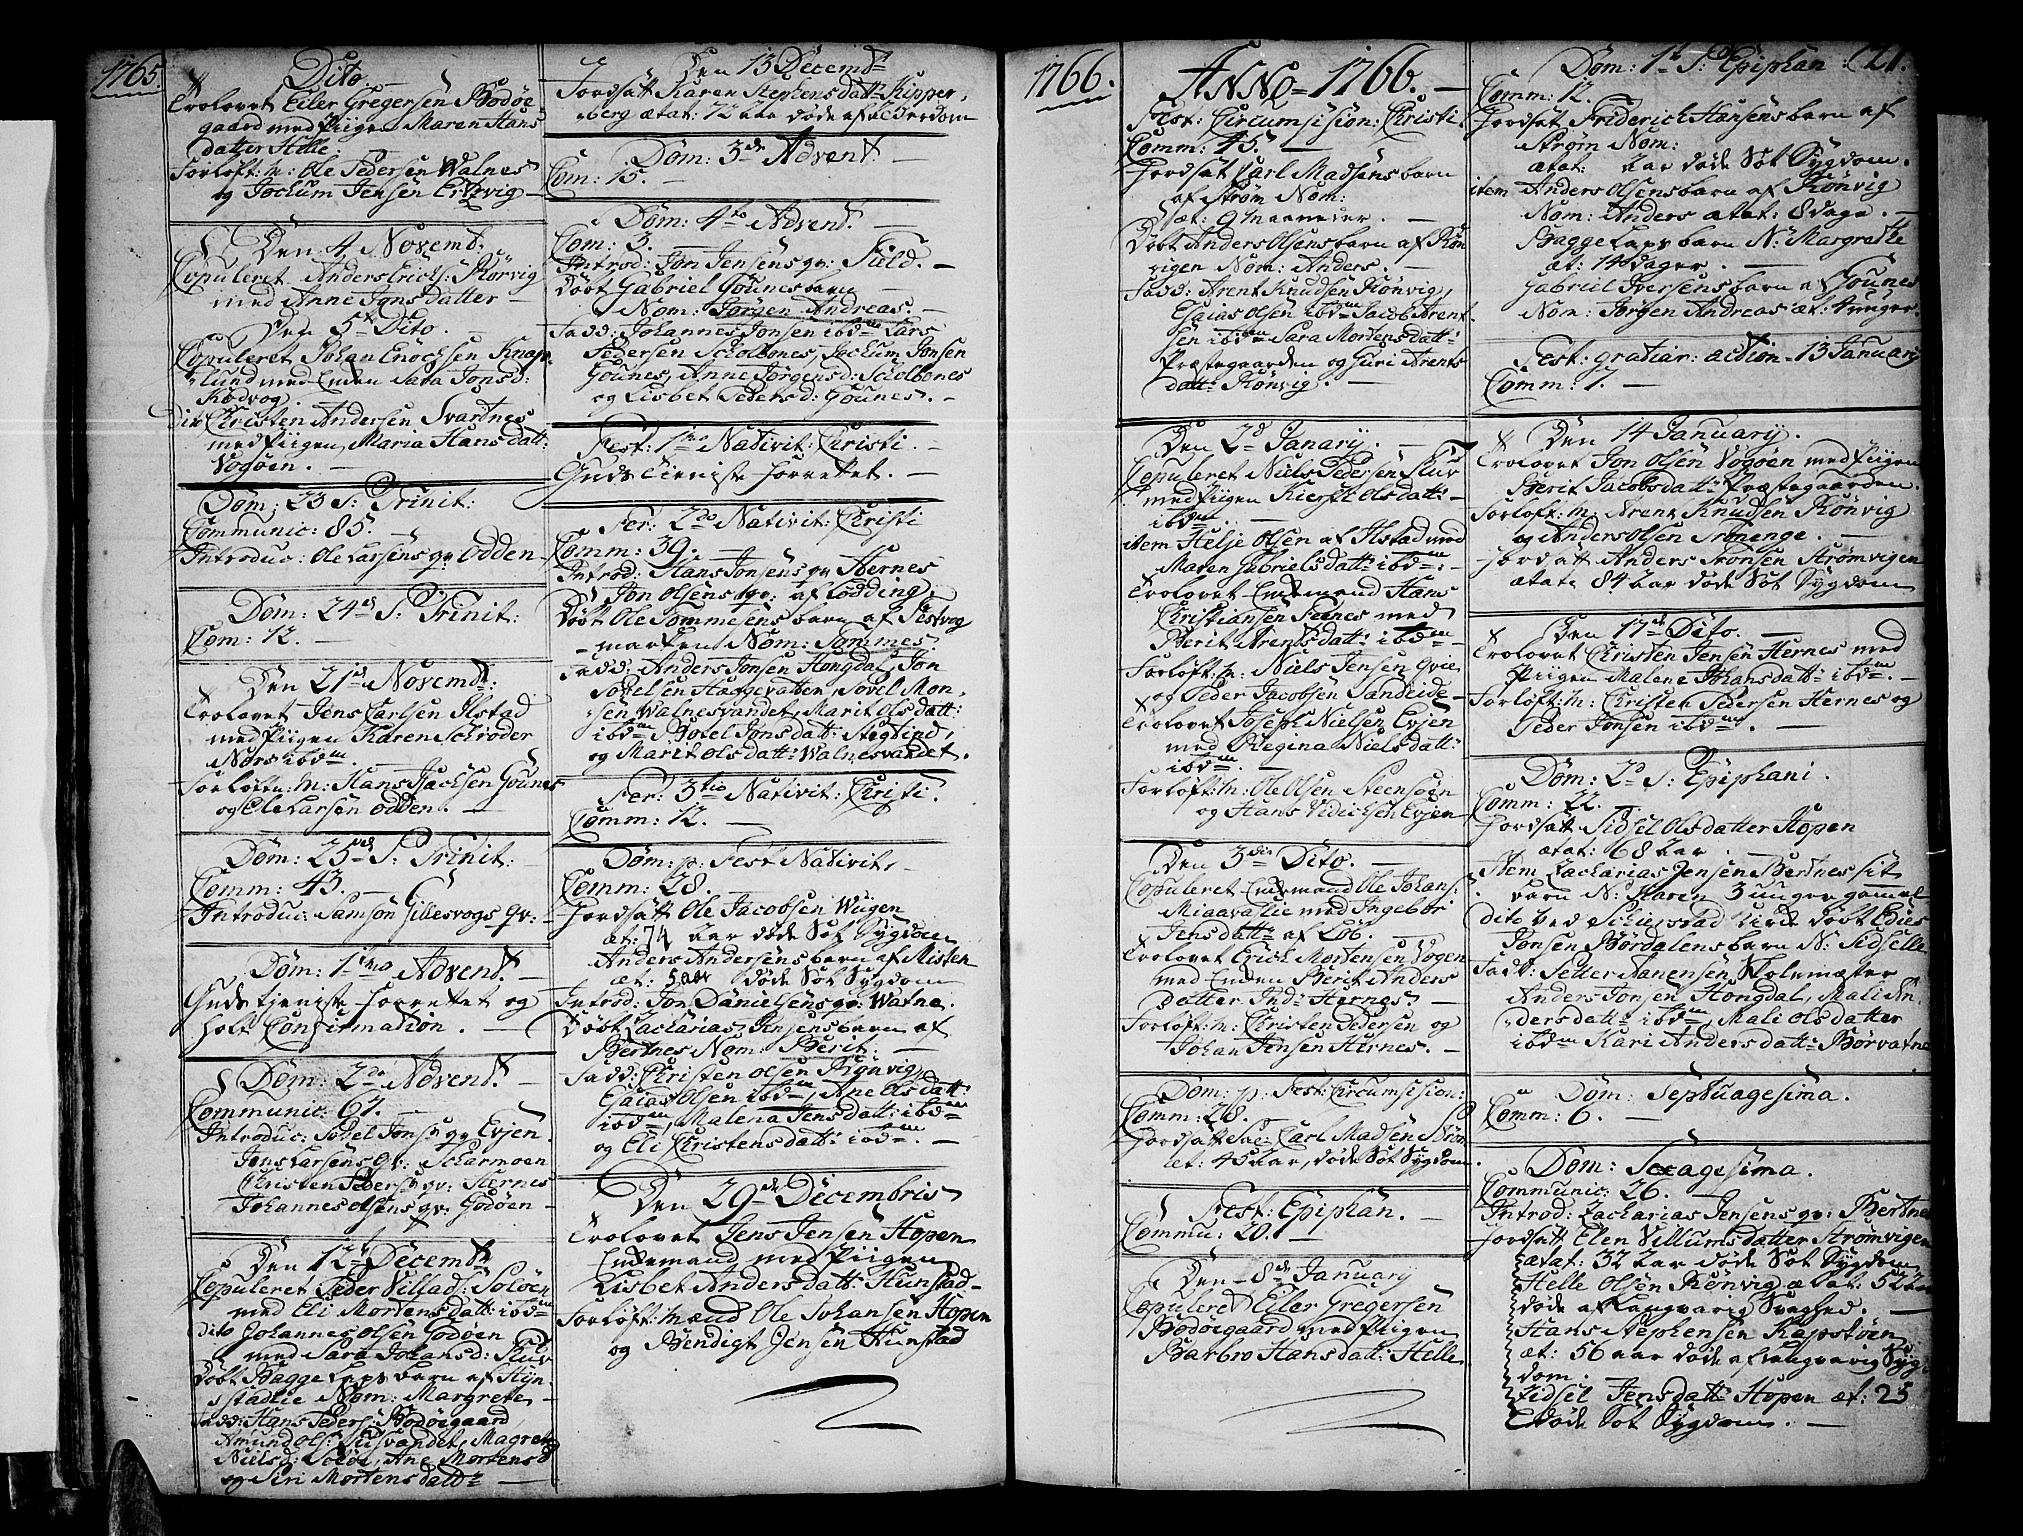 1765.
Dito.
Trolovet Eiler Gregersen Bodøe
gaard med Piigen Maren Hans
datter Helle.
Forløft: M: Ole Pedersen Walnes
og Jochum Jensen
Den 4 Novemb:
Copuleret Anders Erichs: Rørvig
med Anne Jons Datter
Den 5te Dito.
Copuleret Johan Enochsen Knap-
lund med Enken Sara Jonsd:
Rødvog.
dito Christen Andersen Svartnes
med Piigen Maria Hansdatt:
Vogøen.
Dom: 23 S: Trinit:
Communic: 85.
Introduc: Ole Larsens qv: Odden
Dom: 24de S: Trinit:
Com: 12.
Den 21de Novemb:
Trolovet Jens Carlsen Ilstad
med Piigen Karen Schrøder
Nors ibdm.
Forløftn: M: Hans Isachsen Gounes
og Ole Larsen Odden.
Dom: 25de S: Trinit:
Comm: 43.
Introduc: Samson Gillesvogs qv:
Dom: 1mo Advent
Guds tieniste forrettet og
holt Confirmation.
Dom: 2da Advent.
Communic: 67.
Introduc: Sovel Jons: qv: Evjen.
Jens Larsens qv: Scharmoen
Christen Peders: qv: Særnes
Johannes Olsens qv: Godøen
Den 12te Decemb
Copuleret Peder Villads: Soløen
med Eli Mortensdatt: ibdm
dito Johannes Olsen Godøen
med Sara Johansd: Skiv
Døbt Bagge Laps barn af Hun-
stadlie Nom: Margrete
Fadd: Hans Peders: Bodøegaard,
Amund Ols: Lusvandet, Magrete
Nielsd: Soløe, Ane Mortensd
og Siri Mortensdatt:
Den 13 Decemb
Jordsatt Karen Stephensdatt: Kipper-
berg ætat: 72 aar døde af Alderdom
Dom: 3de Advent
Com: 15.
Dom: 4to Advent.
Com: 3.
Introd: Jon Jensens qv: Field.
Døbt Gabriel Gounes barn
Nom: Jørgen Andreas.
Fadd: Johannes Jonsen ibdm Lars
Pedersen Schelbones, Jochum Jonsen
Gounes, Anne Jørgensd: Scielbones
og Lisbet Pedersd: Gounes.
Fest: 1mo Nativit: Christi
Guds Tieniste forrettet.
Fer: 2do Nativit: Christi
Comm: 39.
Introd: Hans Jonsens qv Hernes
Jon Olsens qv: af Lødding.
Døbt Ole Tommesens barn af Festvog
marken Nom: Tommes.
Fadd: Anders Jonsen Hongdal, Jon
Sovelsen Haggevatten, Sovel Mon-
sen Walnesvandet, Marit Olsdatt:
ibdm Botel Jonsdatt: Stegtind,
og Marit Olsdatt: Walnesvandet.
Fer: 3tio Nativit: Christi.
Comm: 12.
Dom: p: Fest Nativit:
Comm: 28.
Jordsatt Ole Jacobsen Wugen
æt: 74 aar døde Sot Sygdom
Anders Andersens barn af Misten
æt: 5 aar døde Sot Sygdom
Introd: Jon Danielsens qv: Watne.
Døbt Zacharias Jensens barn af
Bertnes Nom: Berit.
Fadd: Christen Olsen Rønvig,
Esaias Olsen ibdm, Ane Olsdatt:
ibdm, Malena Jensdatt: ibdm
og Eli Christensdatt: ibdm.
Den 29de Decembris
Trolovet Jens Jensen Hopen
Enkemand med Piigen
Lisbet Andersdatt: Hunstad
Forløft: mænd Ole Johansen Hopen
og Bendigt Jensen Hunstad
1766.
Anno 1766.
Fest: Circumsision: Christi.
Comm: 45.
Jordsat Carl Madsens barn
af Strøm Nom:
æt: 9 maaneder.
Døbt Anders Olsens barn af Røn
vigen Nom: Anders.
Fadd: Arent Knudsen Rønvig,
Esaias Olsen ibdm Jacob Arent
sen ibdm Sara Mortensdatt:
Præstegaarden og Guri Arents
datt: Rønvig.
Den 2d Janary.
Copuleret Niels Pedersen Skiv
med Piigen Kierst: Olsdatt:
ibdm.
item Helje Olsen af Ilstad med
Maren Gabrielsdatt: ibdm.
Trolovet Enkemand Hans
Christiansen Seenes med
Berit Arentsdatt: ibdm
Forløft: M: Niels Jensen Qvie
og Peder Jacobsen Sandeide
Trolovet Joseph Nielsen Evjen
med Regina Nielsdatt:
ibdm.
Forløft: M: Ole Olsen Steensøen
og Hans Vidichsen Evjen
Den 3die Dito.
Copuleret Enkemand Ole Johans:
Miaavatlie med Ingebor
Jensdatt: af Løb.
Trolovet Erich Mortensen Vogen
med Enken Berit Anders
datter Ind: Hernes
Forløft: M: Christen Pedersen og
Johan Jensen Hernes.
Dom: p: Fest: Circumsision:
Comm: 28.
Jordsatt Sal: Carl Madsen Strøm
æt: 45 aar, døde Sot Sygdom.
Fest: Epiphan.
Commu: 20.
Den 8de January
Copuleret Eiler Gregersen
Bodøegaard med Piigen
Barbro Hansdatt: Helle
21.
Dom: 1te S: Epiphan:
Comm: 12.
Jordsat Friderich Hansens barn af
Strøm Nom:
ætat: aar døde Sot Sygdom.
item Anders Olsens barn af Rønvig
Nom: Anders ætat: 8 dage.
Bagge Laps barn N: Margrethe
æt: 14 dager.
Gabriel Iversens barn af Gounes
Nom: Jørgen Andreas æt: 4 uuger.
Fest: gratiar: action 13 January
Comm: 7.
Den 14 January.
Trolovet Jon Olsen Vogøen med Piigen
Berit Jacobsdatt: Præstegaarden.
Forløft: M: Arent Knudsen Rønvig
og Anders Olsen Trønenge.
Jordsatt Anders Tronsen Strømvigen
ætat: 84 aar døde Sot Sygdom
Den 17de Dito.
Trolovet Christen Jensen Hernes med
Piigen Malene Johansdatt: ibdm.
Forløft: M: Christen Pedersen Hernes og
Peder Jonsen ibdm.
Dom: 2d S: Epiphani.
Comm: 22.
Jordsatt Sidsel Olsdatter Hopen
ætat: 68 aar.
Item Zacharias Jensen Bertnes sit
barn N: Maren 3 uuger gammel
dito ved Schierstad kirke døbt Edies
Jonsen Bordalens barn N: Sidselle
Fadd: Setter Aanensen Skolemæster
Anders Jonsen Hongdal, Mali An-
dersdatt: ibdm, Mali Olsdatter
ibdm Kari Andersdatt: Børvatne
Dom: Septuagesima.
Comm: 6.
Dom: Sexagesima.
Communic: 26.
Introd: Zacharias Jensens qv: Bertnes
Jordsatt Elen Villumsdatter Strømvigen
ætat: 32 aar døde Sot Sygdom
Helle Olsen Rønvig ætat: 52 aar
døde af langvarig Svaghed.
Hans Stephensen Kapstøen
æt: 56 aar døde af langvarig Syg
dom.
Sidsel Jensdatt: Hopen æt: 25
døde Sot Sygdom.